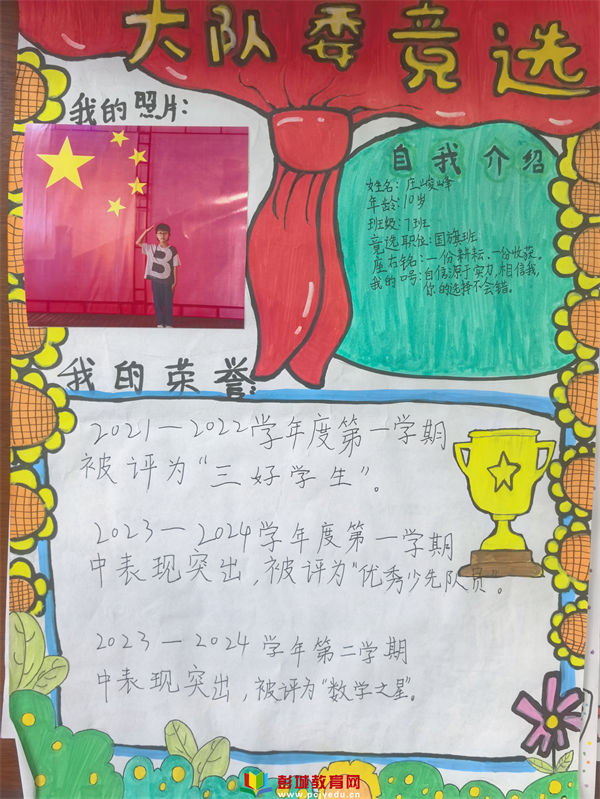 大队委竞选
我的照片:
B
自我介绍
姓名: 庄峻峰
年龄: 10岁
班级: 7班
竞选职位: 国旗班
座右铭: 一份耕耘、一份收获。
我的口号: 自信源于实力, 相信我,
你的选择不会错。
我的荣誉:
2021—2022学年度第一学期
被评为“三好学生”。
2023—2024学年度第一学期
中表现突出,被评为“优秀少先队员”。
2023—2024学年第二学期
中表现突出,被评为“数学之星”。
彭城教育网
www.pcjyedu.cn